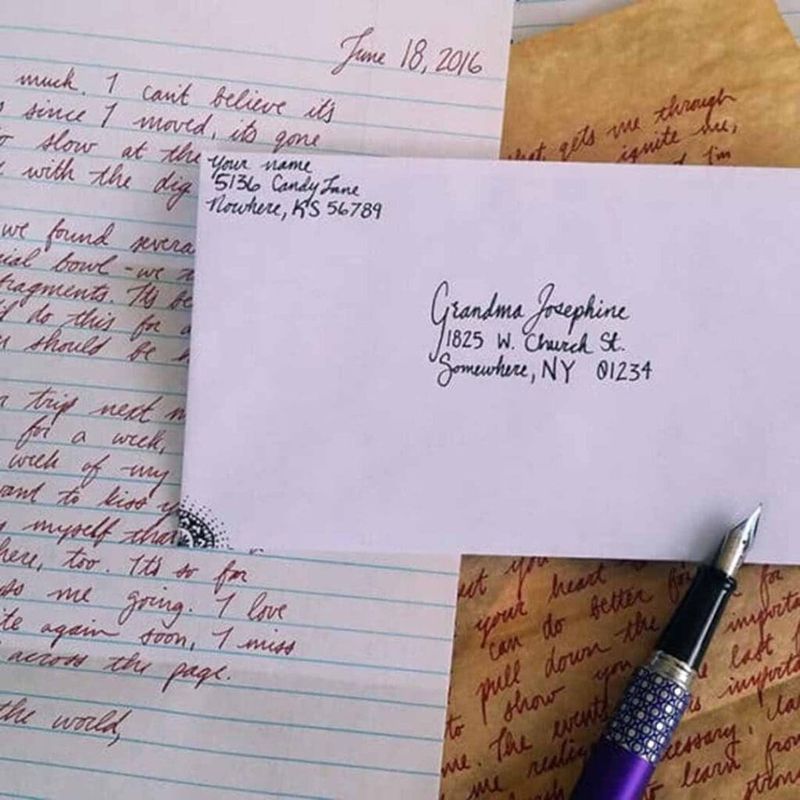 June 18, 2016
much. I can't believe it's
since I moved, it's gone
slow at the
with the dig
we found severa
bowl - we
fragments. It's be
do this for a
should be h
trip next m
for a week,
week of my
want to kiss y
myself than
here, too. It's so far
me going. I love
again soon, I miss
across the page.
the world,
Your name
5136 Candy Lane
Nowhere, KS 56789
Grandma Josephine
1825 W. Church St.
Somewhere, NY 01234
that gets me through
ignite me,
I'm
your heart
can do better for
pull down the
to show you
the last
me. The event
me realiz
important
importa
necessary.
to learn from
strong